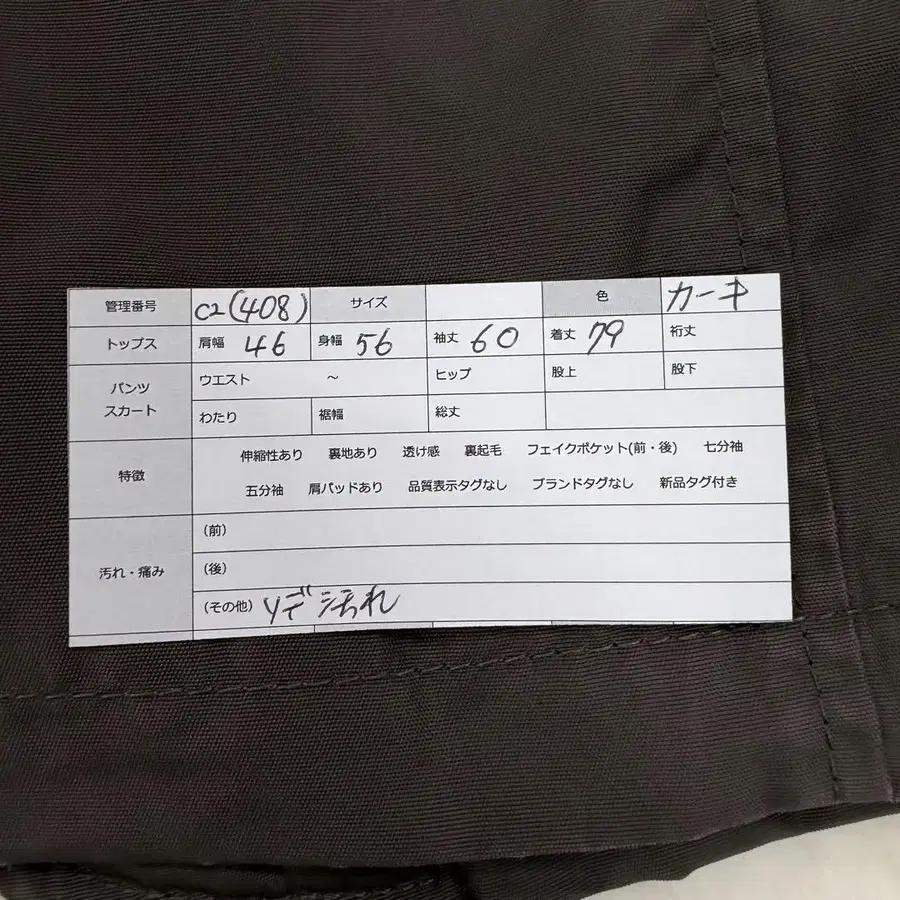 管理番号 C2(408) サイズ 色 カーキ
トップス 肩幅 46 身幅 56 袖丈 60 着丈 79 裄丈
パンツ スカート ウエスト ～ ヒップ 股上 股下
わたり 裾幅 総丈
特徴 伸縮性あり 裏地あり 透け感 裏起毛 フェイクポケット(前・後) 七分袖
五分袖 肩パッドあり 品質表示タグなし ブランドタグなし 新品タグ付き
汚れ・痛み (前)
(後)
(その他) ソデ汚れ